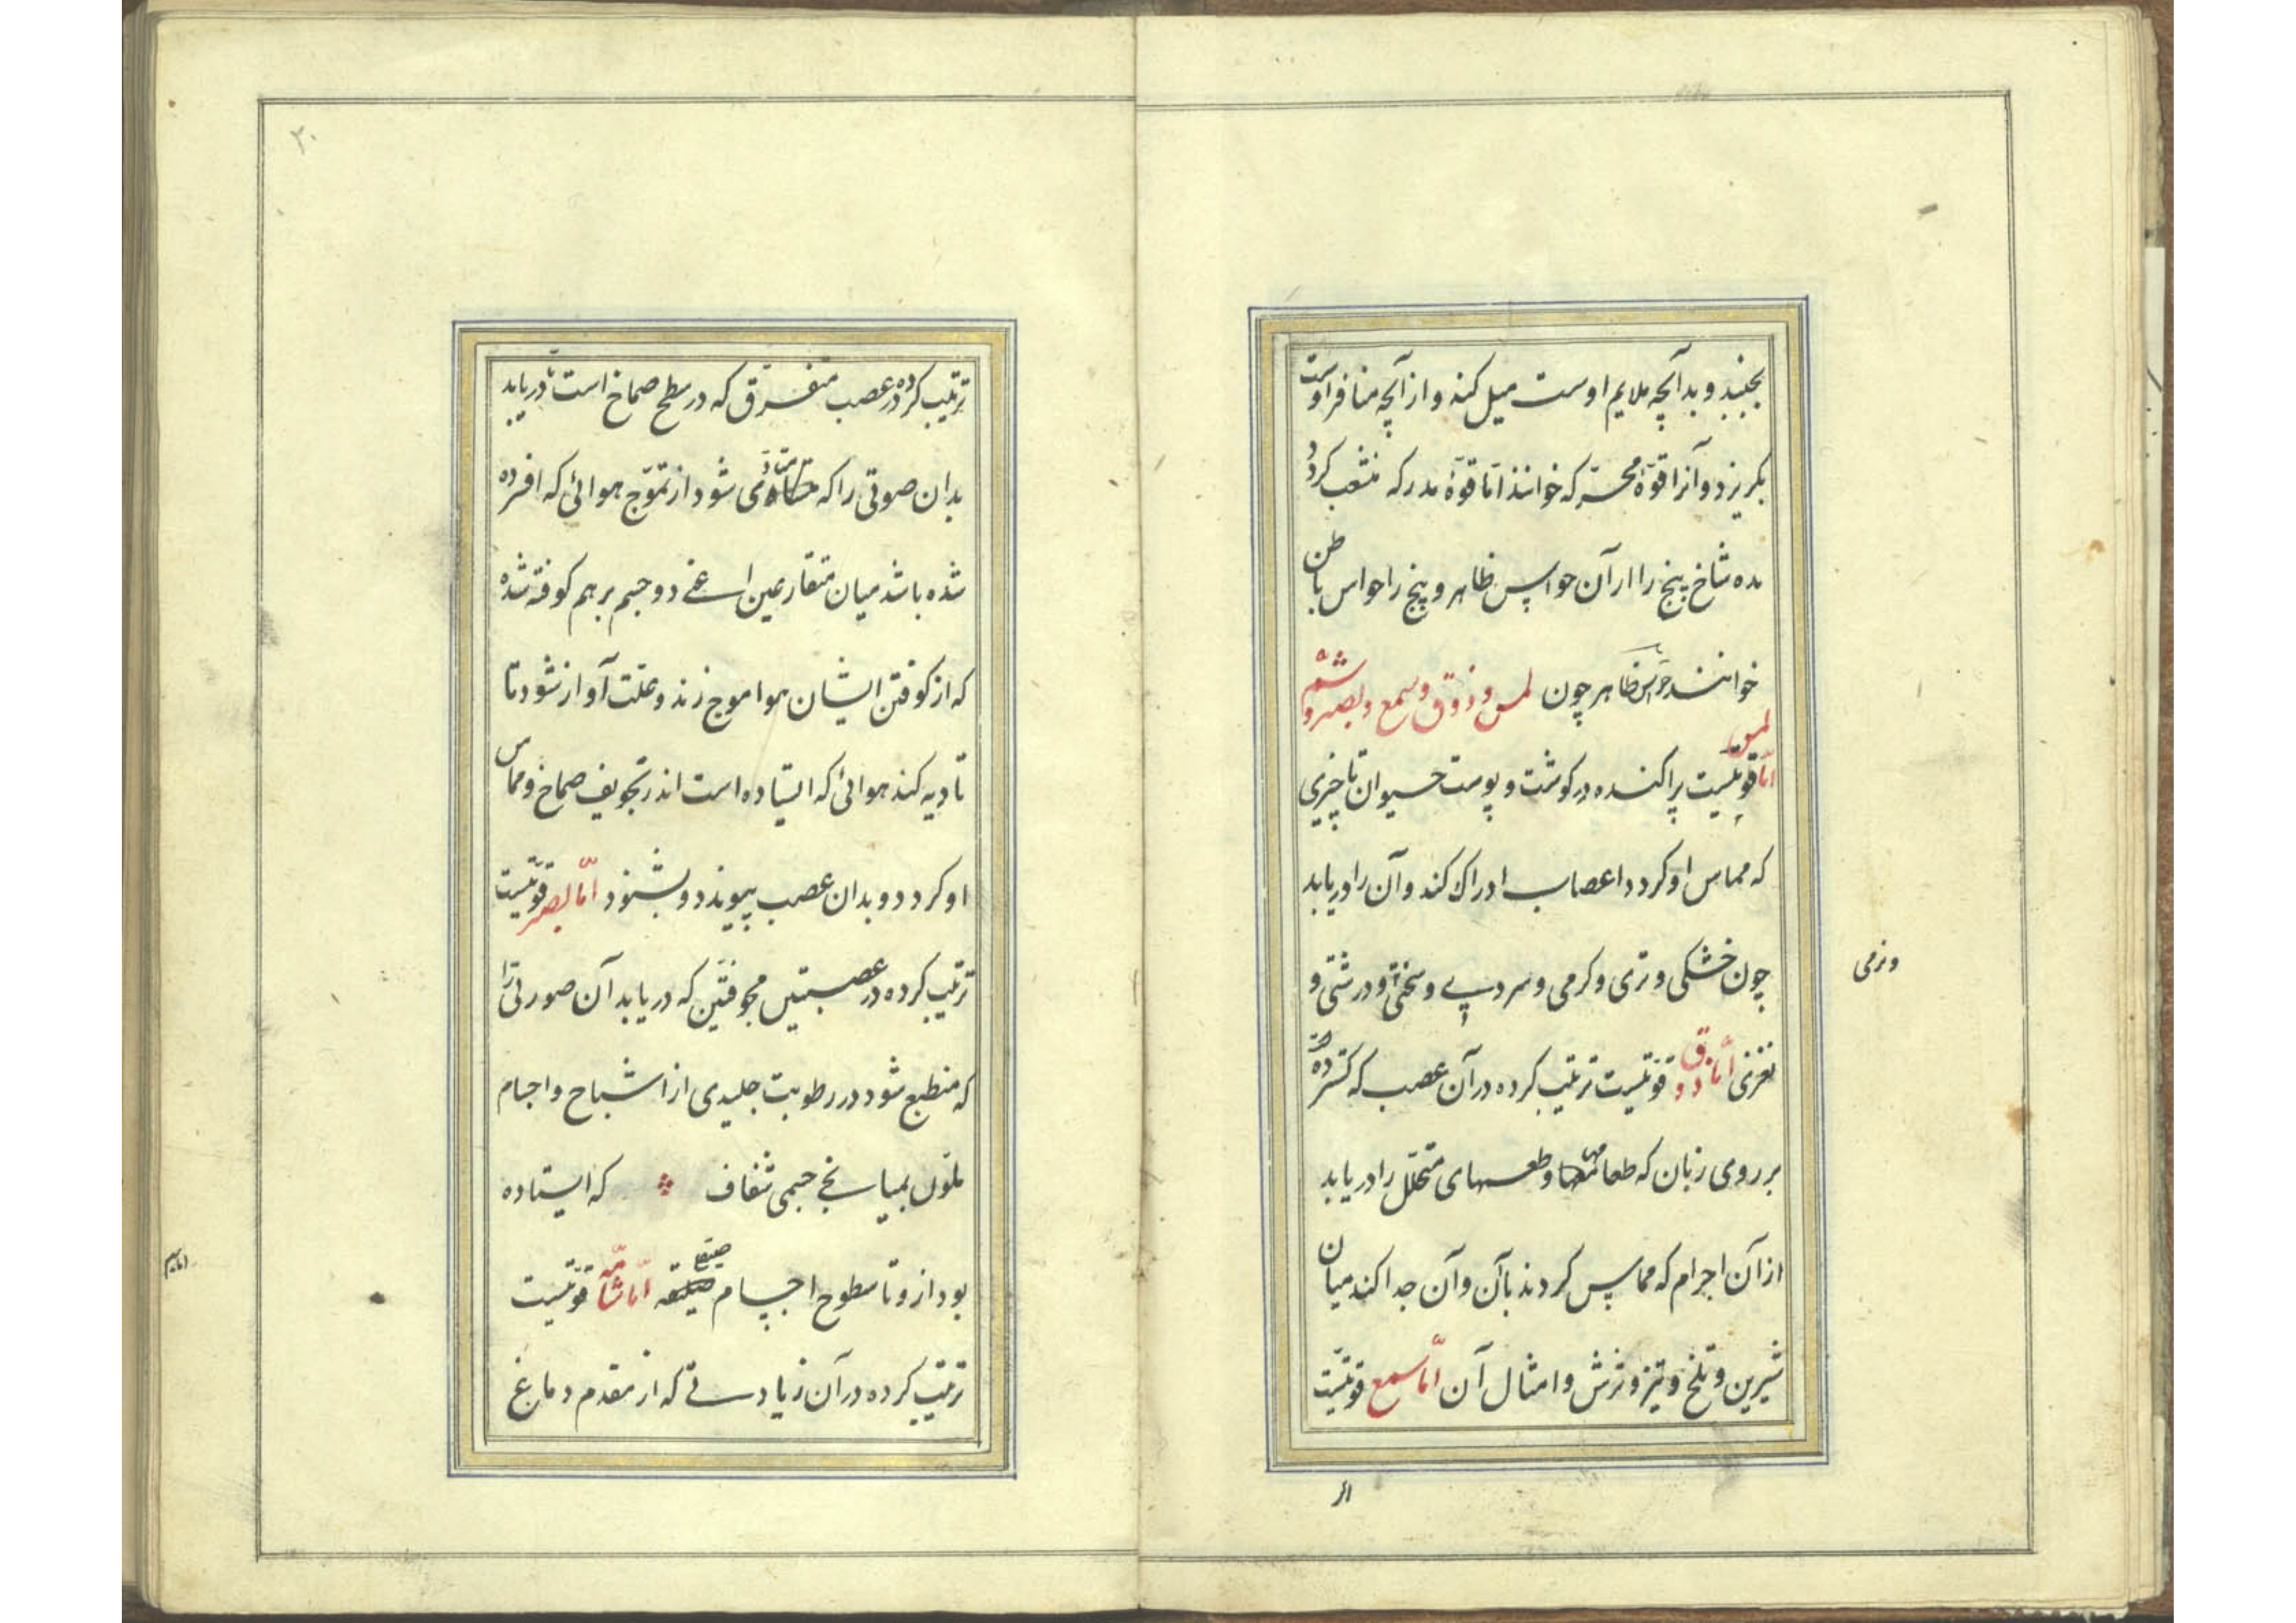 بجنبد و بدآنچه ملایم اوست میل کند و از آنچه منافر اوست
بکریزد و آنرا قوّهٔ محرّکه خوانند امّا قوّهٔ مدرکه منشعب کردد
بده شاخ پنج را از آن حواس ظاهر و پنج را حواس باطن
خوانند حواس ظاهر چون لمس و ذوق و سمع و بصر و شم
امّا لمس قوّتیست پراکنده در کوشت و پوست حیوان تا چیزی
که مماس او کردد اعصاب ادراک کند و آن را دریابد
چون خشکی و تری و کرمی و سردی و سختی و درشتی و
و نرمی
نغزی امّا ذوق قوّتیست ترتیب کرده در آن عصب که کسترده
بر روی زبان که طعامها و طعمهای متحلّل را دریابد
از آن اجرام که مماس کردند با آن و آن جدا کند میان
شیرین و تلخ و تیز و ترش و امثال آن امّا سمع قوّتیست
۲۰
ترتیب کرده در عصب متفرّق که در سطح صماخ است تا دریابد
بدان صوتی را که متادی شود از تموّج هوائی که افسرده
شده باشد میان متقارعین اعنی دو جسم برهم کوفته شده
که از کوفتن ایشان هوا موج زند و علت آواز شود تا
تادیه کند هوائی که ایستاده است اندر تجویف صماخ و مماس
او کردد و بدان عصب پیوندد و بشنود امّا بصر قوّتیست
ترتیب کرده در عصبتین مجوفتین که دریابد آن صورتی را
که منطبع شود در رطوبت جلیدی از اشباح و اجسام
ملون بمیانجی جسمی شفاف که ایستاده
بود ازو تا سطوح اجسام صیقله امّا شامّه قوّتیست
ترتیب کرده در آن زیادتی که از مقدم دماغ